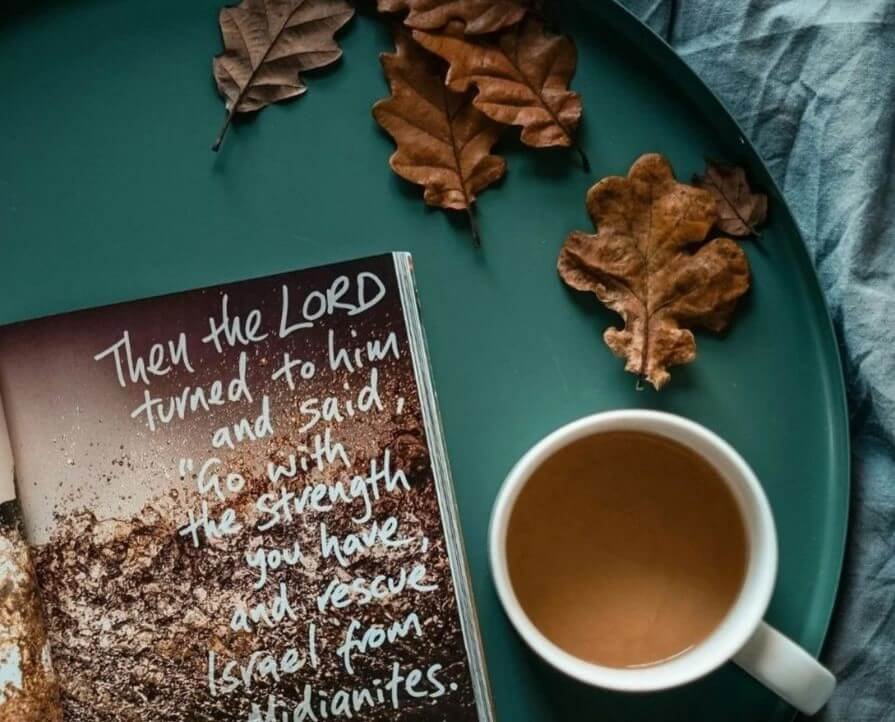 Then the LORD
turned to him
and said,
"Go with
the strength
you have,
and rescue
Israel from
Midianites.